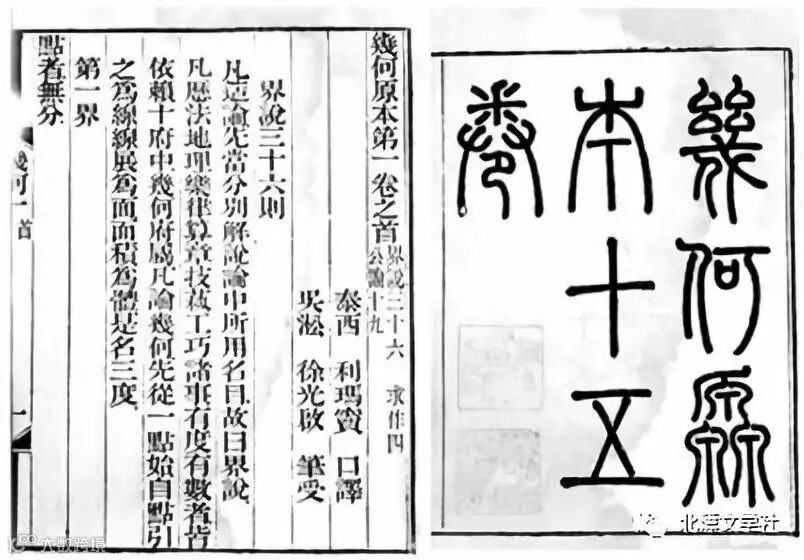 幾何原
本十五
卷
幾何原本第一卷之首 界說三十六 求作四
公論十九
泰西 利瑪竇 口譯
吳淞 徐光啟 筆受
界說三十六則
凡造論先當分別解說論中所用名目故曰界說
凡歷法地理樂律算章技藝工巧諸事有度有數者皆
依賴十府中幾何府屬凡論幾何先從一點始自點引
之為線線展為面面積為體是名三度
第一界
點者無分
幾何一 首
一
大数跨境
北漂文学社